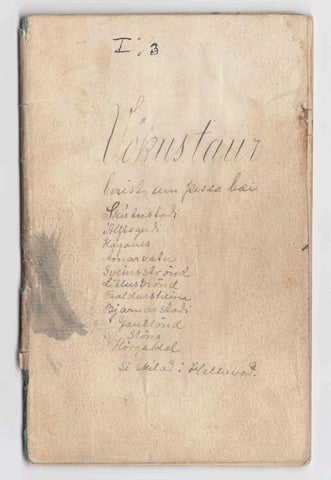 I, 3
Vökustaur
berist um þessa bæi
Skútustaði
Álftagerði
Haganes
Arnarvatn
Sveinsströnd
Litluströnd
Baldursheim
Bjarnarstaði
Gautlönd
Stöng
Hörgsdal
Sé skilað í Helluvað.